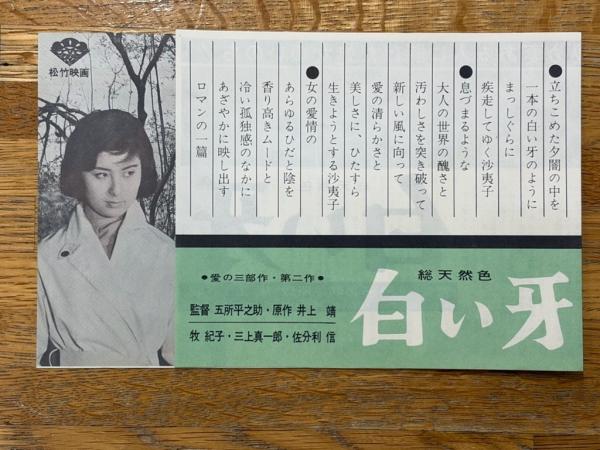 松竹映画
●立ちこめた夕闇の中を
一本の白い牙のように
まっしぐらに
疾走してゆく沙夷子
●息づまるような
大人の世界の醜さと
汚わしさを突き破って
新しい風に向って
愛の清らかさと
美しさに、ひたすら
生きようとする沙夷子
●女の愛情の
あらゆるひだと陰を
香り高きムードと
冷い孤独感のなかに
あざやかに映し出す
ロマンの一篇
総天然色
白い牙
●愛の三部作・第二作●
監督 五所平之助・原作 井上 靖
牧 紀子・三上真一郎・佐分利 信